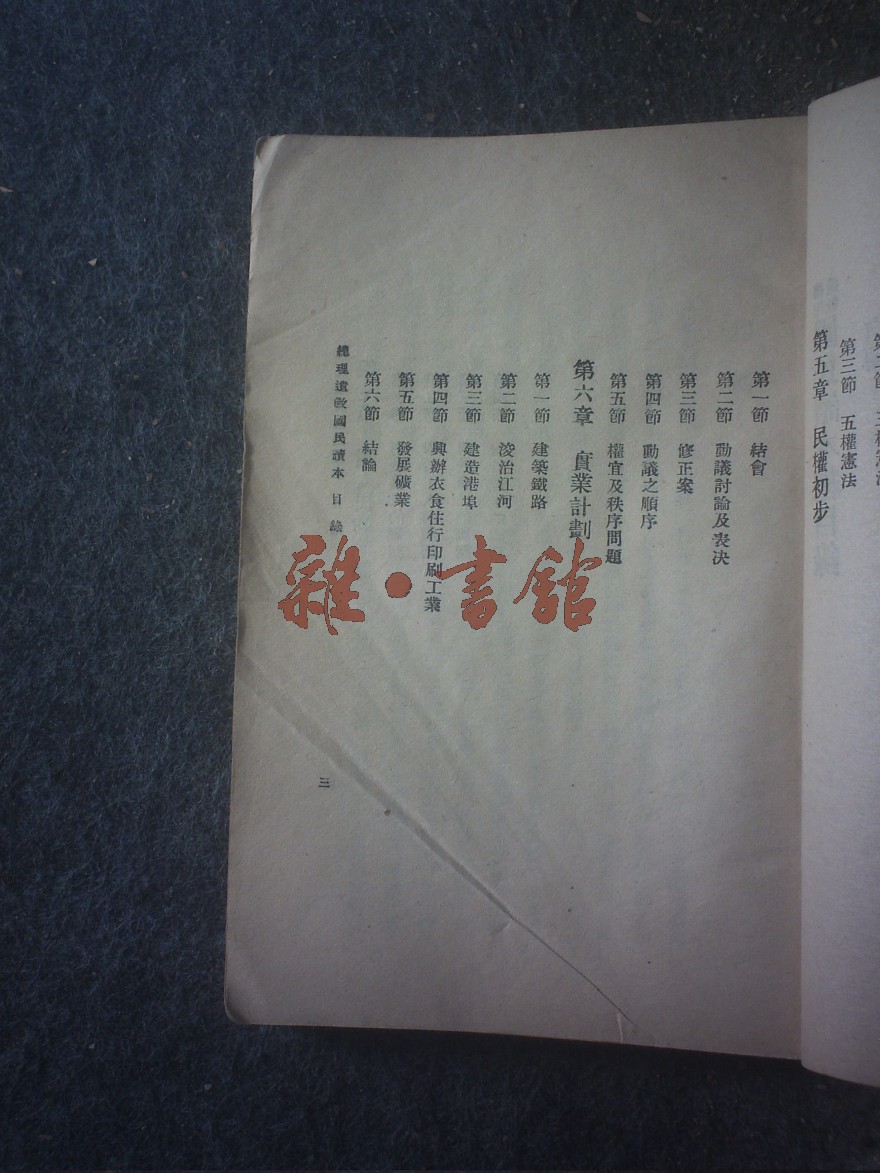 第三節　五權憲法
第五章　民權初步
第一節　結會
第二節　動議討論及表決
第三節　修正案
第四節　動議之順序
第五節　權宜及秩序問題
第六章　實業計劃
第一節　建築鐵路
第二節　浚治江河
第三節　建造港埠
第四節　興辦衣食住行印刷工業
第五節　發展礦業
第六節　結論
總理遺教國民讀本　目錄
三
雜·書館